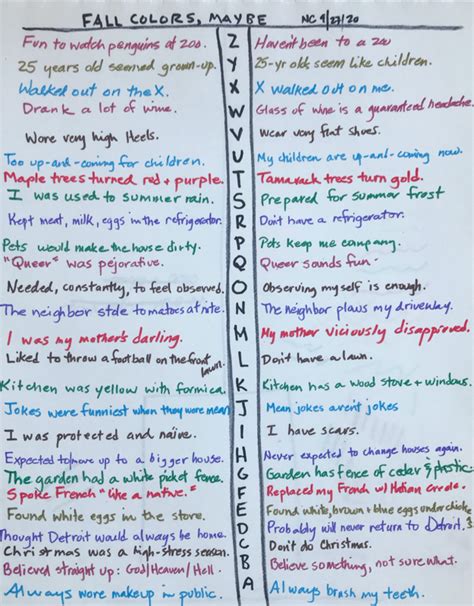 FALL COLORS, MAYBE NC 9/27/20
Fun to watch penguins at zoo. Z Haven't been to a zoo
25 years old seemed grown-up. Y 25-yr olds seem like children.
Walked out on the X. X X walked out on me.
Drank a lot of wine. W Glass of wine is a guaranteed headache.
Wore very high Heels. V Wear very flat shoes.
Too up-and-coming for children. U My children are up-and-coming now.
Maple trees turned red + purple. T Tamarack trees turn gold.
I was used to summer rain. S Prepared for summer frost
Kept meat, milk, eggs in the refrigerator. R Don't have a refrigerator.
Pets would make the house dirty. P Pets keep me company.
"Queer" was pejorative. Q Queer sounds fun.
Needed, constantly, to feel observed. O Observing myself is enough.
The neighbor stole tomatoes at nite. N The neighbor plows my driveway.
I was my mother's darling. M My mother viciously disapproved.
Liked to throw a football on the front lawn. L Don't have a lawn.
Kitchen was yellow with formica. K Kitchen has a wood stove + windows.
Jokes were funniest when they were mean J Mean jokes aren't jokes
I was protected and naïve. I I have scars.
Expected to move up to a bigger house. H Never expected to change houses again.
The garden had a white picket fence. G Garden has fence of cedar & plastic.
Spoke French "like a native." F Replaced my French w/ Haitian Creole.
Found white eggs in the store. E Found white, brown + blue eggs under chicks
Thought Detroit would always be home. D Probably will never return to Detroit.
Christmas was a high-stress season. C Don't do Christmas.
Believed straight up: God/Heaven/Hell. B Believe something, not sure what.
Always wore makeup in public. A Always brush my teeth.